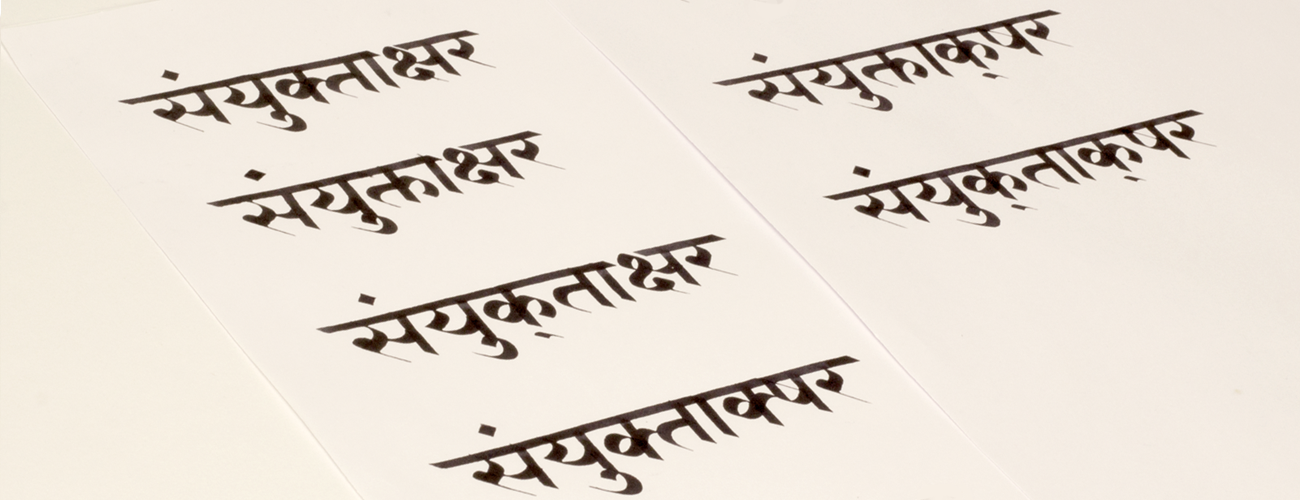 संयुक्‍ताक्षर
संयुक्ताक्षर
संयुक्‌ताक्षर
संयुक्‍ताक्‍षर
संयुक्ताक्‌षर
संयुक्‌ताक्‌षर